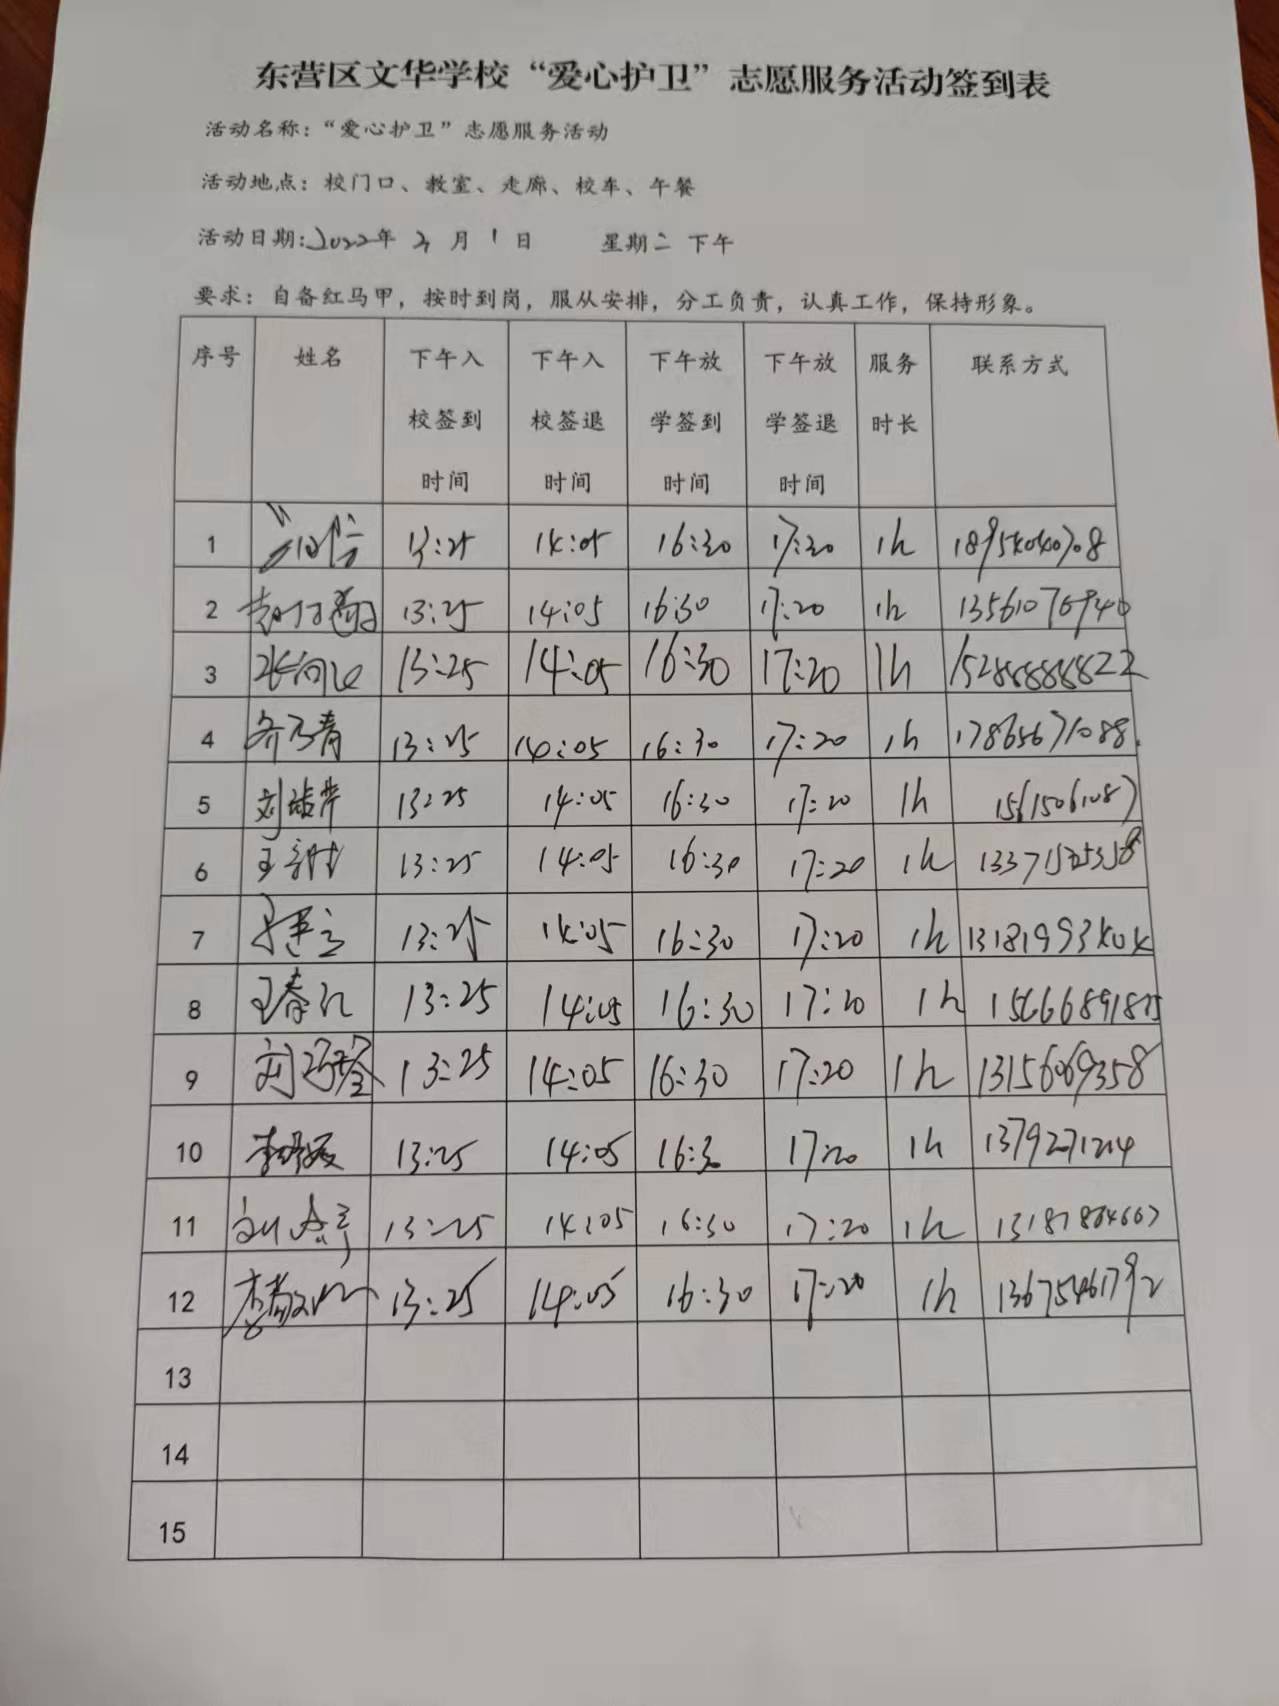 东营区文华学校“爱心护卫”志愿服务活动签到表
活动名称：“爱心护卫”志愿服务活动
活动地点：校门口、教室、走廊、校车、午餐
活动日期:2022年 3 月 1 日 星期二 下午
要求：自备红马甲，按时到岗，服从安排，分工负责，认真工作，保持形象。
序号 姓名 下午入 下午入 下午放 下午放 服务 联系方式
校签到 校签退 学签到 学签退 时长
时间 时间 时间 时间
1 13:25 14:05 16:30 17:20 1h
2 13:25 14:05 16:30 17:20 1h
3 13:25 14:05 16:30 17:20 1h 15288888822
4 齐乃青 13:25 14:05 16:30 17:20 1h 17865671088
5 13:25 14:05 16:30 17:20 1h 15615061087
6 13:25 14:05 16:30 17:20 1h
7 13:25 14:05 16:30 17:20 1h 13181993404
8 13:25 14:05 16:30 17:20 1h 15666891875
9 13:25 14:05 16:30 17:20 1h 13156069358
10 13:25 14:05 16:30 17:20 1h
11 13:25 14:05 16:30 17:20 1h 13181884667
12 13:25 14:05 16:30 17:20 1h 13675461792
13
14
15